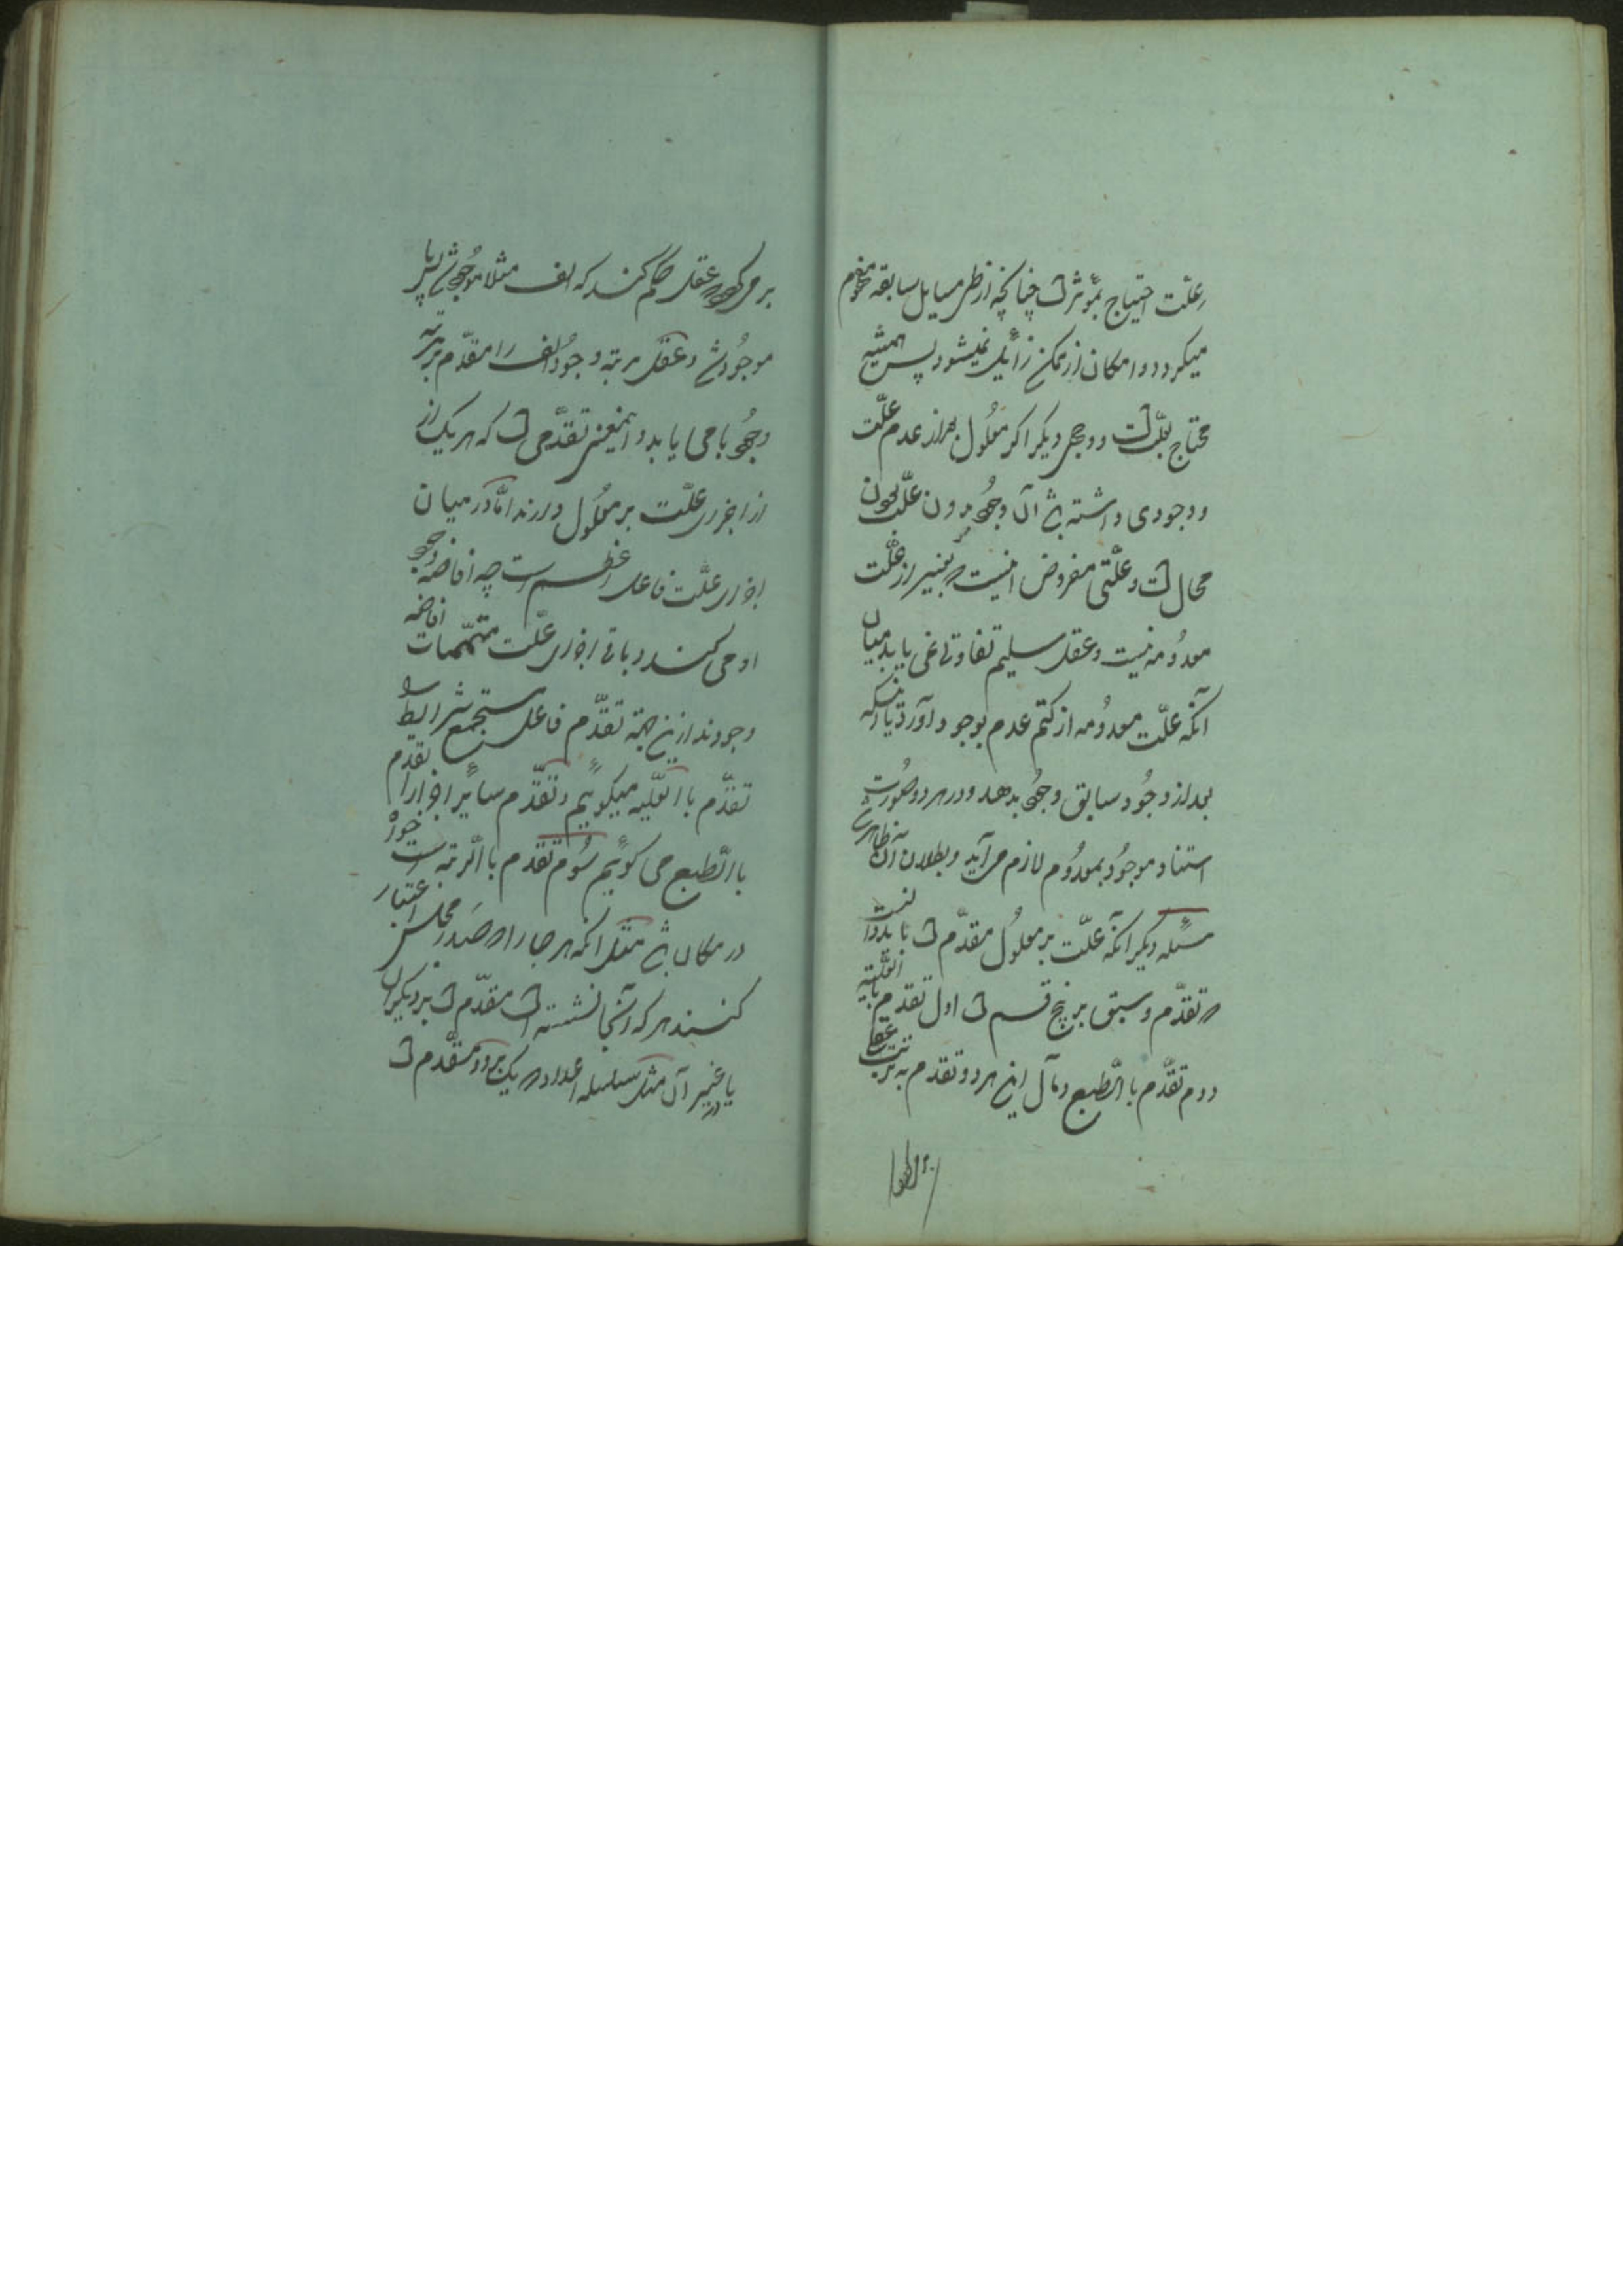 علّت احتیاج بمؤثر است چنانچه از طی مسایل سابقه مفهوم
میکردد و امکان از ممکن زائل نمیشود پس همیشه
محتاج بعلّت است و وجهی دیکر اکر معلول بعد از عدم علّت
وجودی داشته باشد آن وجود بدون علّت چون
محال است و علّتی مفروض این است که بغیر از علّت
معدومه نیست و عقل سلیم تفاوتی نمی یابد میان
آنکه علّت معدومه از کتم عدم بوجود آورد یا آنکه
بعد از وجود سابق وجود بدهد و در هر دو صورت
استناد موجود بمعدوم لازم می آید و بطلان آن ظاهر است
مسئله دیکر آنکه علّت بر معلول مقدّم است باید دانست
که تقدّم و سبق بر پنج قسم است اول تقدّم بالعلّیة
دوم تقدّم با الطبع و مآل این هر دو تقدم به ترتیب عقلی
بر می کردد که عقل حکم کند که الف مثلا موجود شد پس با
موجود شد و عقل مرتبه وجود الف را مقدّم بر مرتبه
وجود با می یابد و اینمعنی تقدّمی است که هر یک از
از اجزای علّت بر معلول دارند امّا در میان
اجزای علّت فاعل اعظم است چه افاضه وجود
او می کند و باقی اجزای علّت متممّات افاضه
وجودند ازین جهة تقدّم فاعل مستجمع شرایط
تقدّم با العلّیه میکوییم و تقدّم سایر اجزا را تقدم
با الطبع می کوییم سوم تقدم با الرتبه است خواه
در مکان باشد مثل آنکه هر جا را که صدر مجلس اعتبار
کنند هر که در آنجا نشسته است مقدّم است بر دیکران
یا در غیر آن مثل سلسله اعداد که یک بر دو مقدّم است